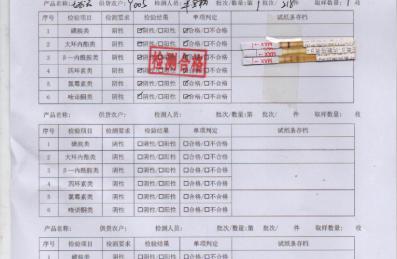 产品名称: 供货农户: Y005 检测人员: 批次/数量:第1批次/ 318件 取样数量: 1 枚
序号 检验项目 检测要求 检验结果 单项判定 试纸条存档
1 磺胺类 阴性 ☑阴性/☐阳性 ☑合格/☐不合格
2 大环内酯类 阴性 ☑阴性/☐阳性 ☑合格/☐不合格
3 β—内酰胺类 阴性 ☑阴性/☐阳性 ☑合格/☐不合格
4 四环素类 阴性 ☑阴性/☐阳性 ☑合格/☐不合格
5 氯霉素类 阴性 ☑阴性/☐阳性 ☑合格/☐不合格
6 喹诺酮类 阴性 ☑阴性/☐阳性 ☑合格/☐不合格
检测合格
MAX
MAX
MAX
产品名称: 供货农户: 检测人员: 批次/数量:第 批次/ 件 取样数量: 枚
序号 检验项目 检测要求 检验结果 单项判定 试纸条存档
1 磺胺类 阴性 ☐阴性/☐阳性 ☐合格/☐不合格
2 大环内酯类 阴性 ☐阴性/☐阳性 ☐合格/☐不合格
3 β—内酰胺类 阴性 ☐阴性/☐阳性 ☐合格/☐不合格
4 四环素类 阴性 ☐阴性/☐阳性 ☐合格/☐不合格
5 氯霉素类 阴性 ☐阴性/☐阳性 ☐合格/☐不合格
6 喹诺酮类 阴性 ☐阴性/☐阳性 ☐合格/☐不合格
产品名称: 供货农户: 检测人员: 批次/数量:第 批次/ 件 取样数量: 枚
序号 检验项目 检测要求 检验结果 单项判定 试纸条存档
1 磺胺类 阴性 ☐阴性/☐阳性 ☐合格/☐不合格